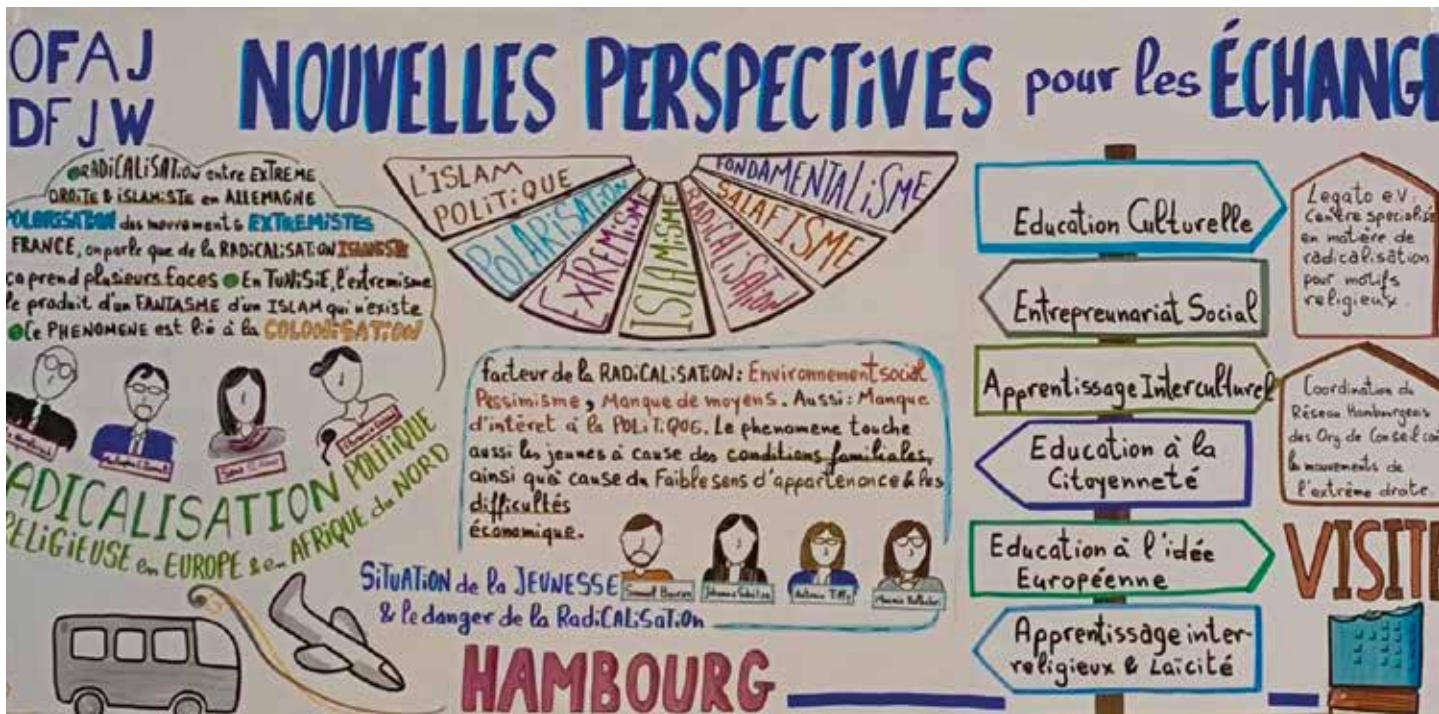 OFAJ
DFJW
NOUVELLES PERSPECTIVES pour les ÉCHANG
RADICALISATION entre EXTREME
DROITE & ISLAMISTE en ALLEMAGNE
POLARISATION des mouvements EXTREMISTES
FRANCE, on parle que de la RADICALISATION
ca prend plusieurs faces En TUNISIE, l'extremisme
le produit d'un FANTASME d'un ISLAM qui n'existe
Ce PHENOMENE est lié à la COLONISATION
RADICALISATION POLITIQUE
RELIGIEUSE en EUROPE & en AFRIQUE du NORD
L'ISLAM
POLITIQUE
POLARISATION
EXTREMISME
ISLAMISME
RADICALISATION
SALAFISME
FONDAMENTALISME
facteur de la RADICALISATION: Environnement social
Pessimisme, Manque de moyens. Aussi: Manque
d'intéret à la POLITIQUE. Le phenomene touche
aussi les jeunes à cause des conditions familiales,
ainsi qu'à cause du Faible sens d'appartenance & les
difficultés
économique.
SITUATION de la JEUNESSE
& le danger de la RADICALISATION
HAMBOURG
Education Culturelle
Entrepreunariat Social
Apprentissage Interculturel
Education à la
Citoyenneté
Education à l'idée
Européenne
Apprentissage inter-
religieux & Laïcité
Legato e.V.
Centre specialisé
en matière de
radicalisation
pour motifs
religieux.
Coordination du
Réseau Hambourgeois
des Org de Conseil
mouvements de
l'extrême droite.
VISITE